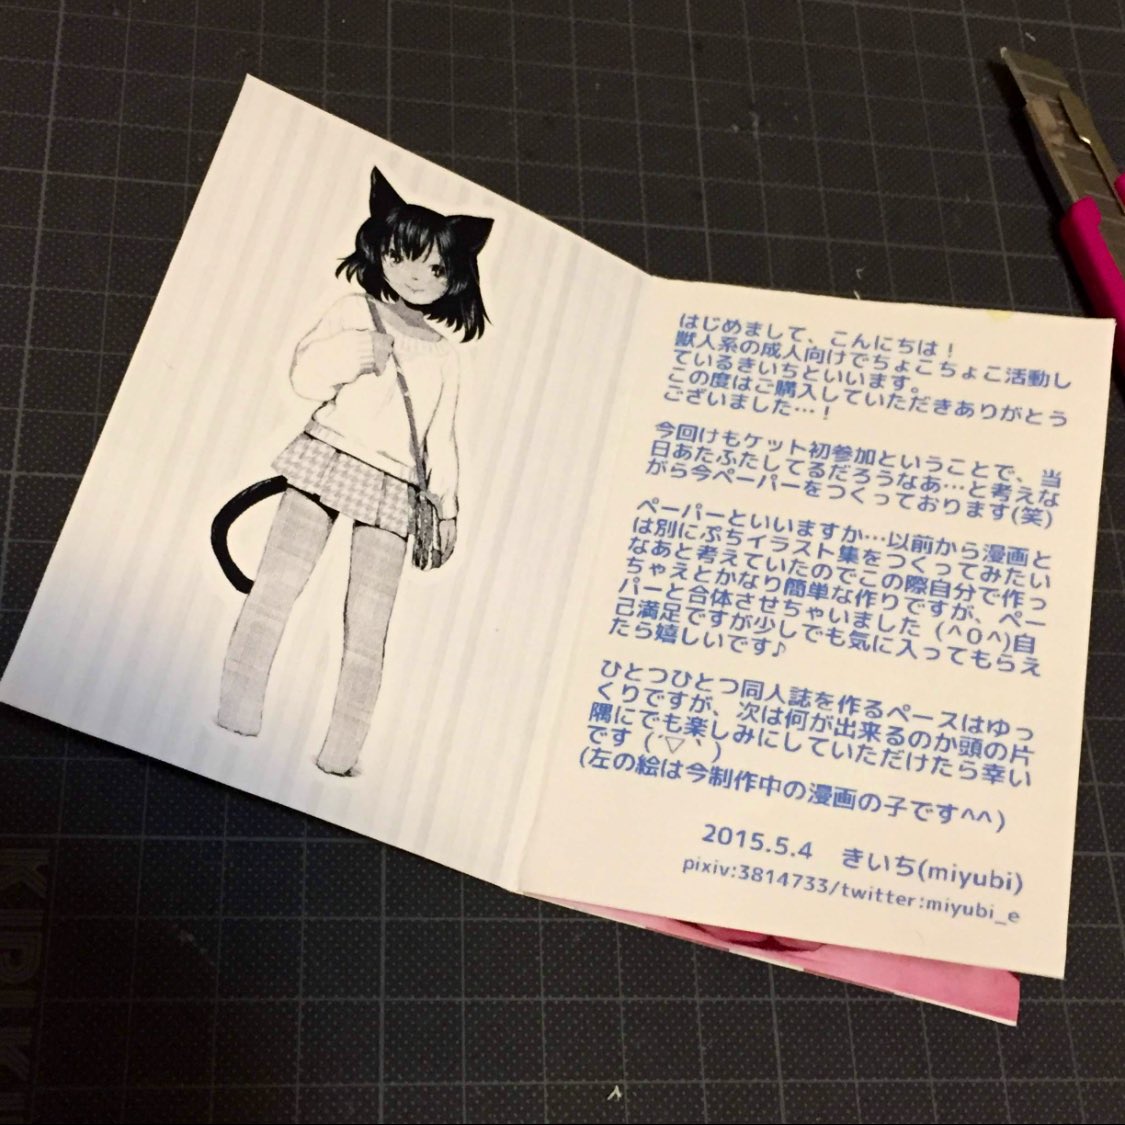 はじめまして、こんにちは！
獣人系の成人向けでちょこちょこ活動し
ているきいちといいます。
この度はご購入していただきありがとう
ございました…！
今回けもケット初参加ということで、当
日あたふたしてるだろうなあ…と考えな
がら今ペーパーをつくっております(笑)
ペーパーといいますか…以前から漫画と
は別にぷちイラスト集をつくってみたい
なあと考えていたのでこの際自分で作っ
ちゃえとかなり簡単な作りですが、ペー
パーと合体させちゃいました（^o^)自
己満足ですが少しでも気に入ってもらえ
たら嬉しいです♪
ひとつひとつ同人誌を作るペースはゆっ
くりですが、次は何が出来るのか頭の片
隅にでも楽しみにしていただけたら幸い
です（´▽｀）
(左の絵は今制作中の漫画の子です^^)
2015.5.4　きいち(miyubi)
pixiv:3814733/twitter:miyubi_e